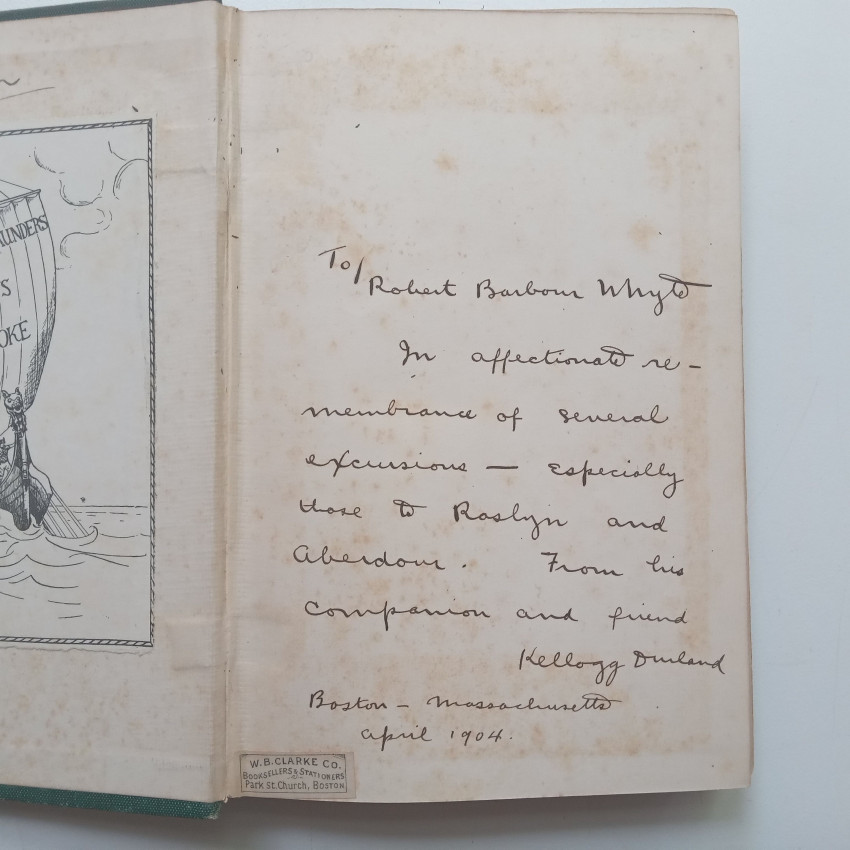 AUNDERS
S
OKE
To/
Robert Barbour Whyte
In affectionate re-
membrance of several
excursions — especially
those to Roslyn and
Aberdour. From his
companion and friend
Kellogg Durland
Boston - Massachusetts
April 1904.
W.B. CLARKE CO.
BOOKSELLERS & STATIONERS
Park St. Church, BOSTON